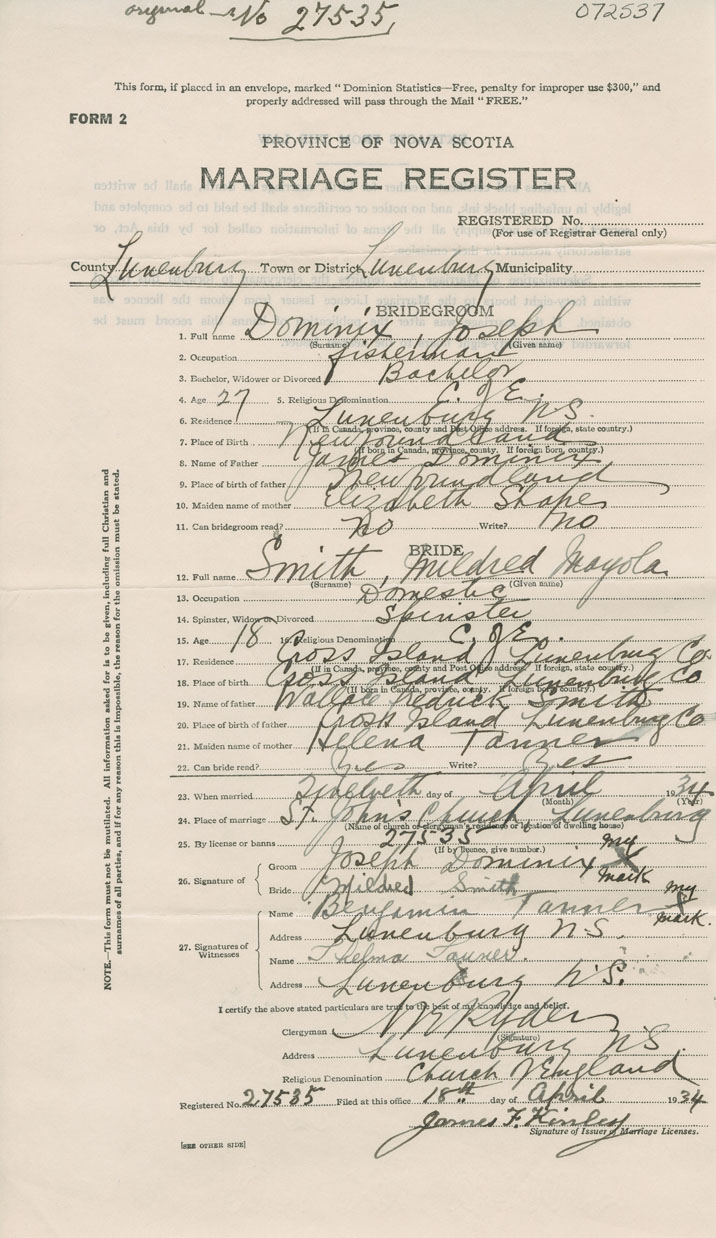 original — No 27535,
072537
This form, if placed in an envelope, marked "Dominion Statistics—Free, penalty for improper use $300," and
properly addressed will pass through the Mail "FREE."
FORM 2
PROVINCE OF NOVA SCOTIA
MARRIAGE REGISTER
REGISTERED No.
(For use of Registrar General only)
County Lunenburg Town or District Lunenburg Municipality
BRIDEGROOM
1. Full name Dominix, Joseph
(Surname) (Given name)
2. Occupation fisherman
3. Bachelor, Widower or Divorced Bachelor
4. Age 27 5. Religious Denomination C. of E.
6. Residence Lunenburg N.S.
(If in Canada, province, county and Post Office address. If foreign, state country.)
7. Place of Birth Newfoundland
(If born in Canada, province, county. If foreign born, country.)
8. Name of Father James Dominix
9. Place of birth of father Newfoundland
10. Maiden name of mother Elizabeth Shapes
11. Can bridegroom read? No Write? No
BRIDE
12. Full name Smith, Mildred Mayola
(Surname) (Given name)
13. Occupation Domestic
14. Spinster, Widow or Divorced Spinster
15. Age 18 16. Religious Denomination C. of E.
17. Residence Cross Island Lunenburg Co
(If in Canada, province, county and Post Office address. If foreign, state country.)
18. Place of birth Cross Island Lunenburg Co
(If born in Canada, province, county. If foreign born, country.)
19. Name of father Fredrick Smith
20. Place of birth of father Cross Island Lunenburg Co
21. Maiden name of mother Helena Tanner
22. Can bride read? Yes Write? Yes
23. When married day of April 1934
(Month) (Year)
24. Place of marriage St. John's Church, Lunenburg
(Name of church or clergyman's residence or location of dwelling house)
25. By license or banns 27535
(If by licence, give number.)
26. Signature of Groom Joseph Dominix My X mark
Bride Mildred Smith
27. Signatures of Witnesses
Name Benjamin Tanner My X mark.
Address Lunenburg N.S.
Name Thelma Tanner.
Address Lunenburg N.S.
I certify the above stated particulars are true to the best of my knowledge and belief.
Clergyman Ryder
(Signature)
Address Lunenburg N.S.
Religious Denomination Church of England
Registered No. 27535 Filed at this office 18th day of April 1934
James F. Kinley
Signature of Issuer of Marriage Licenses.
[SEE OTHER SIDE]
NOTE.—This form must not be mutilated. All information asked for is to be given, including full Christian and
surnames of all parties, and if for any reason this is impossible, the reason for the omission must be stated.